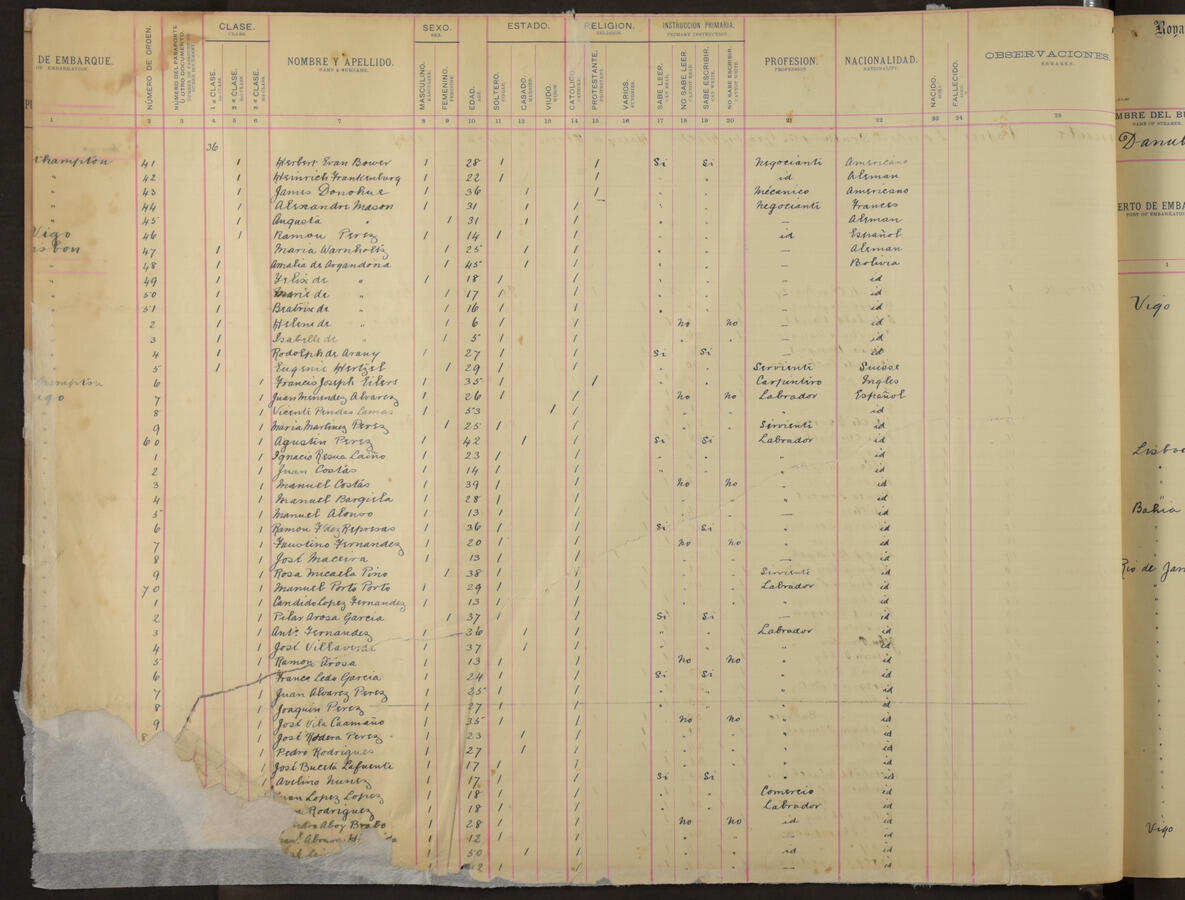 CLASE. SEXO. ESTADO. RELIGION. INSTRUCCION PRIMARIA.
CLASS. SEX. RELIGION. PRIMARY INSTRUCTION.
DE EMBARQUE. NÚMERO DE ORDEN. 1ª CLASE. 2ª CLASE. 3ª CLASE. NOMBRE Y APELLIDO. MASCULINO. FEMENINO. EDAD. SOLTERO. CASADO. VIUDO. CATOLICO. PROTESTANTE. VARIOS. SABE LEER. NO SABE LEER. SABE ESCRIBIR. NO SABE ESCRIBIR. PROFESION. NACIONALIDAD. NACIDO. FALLECIDO. OBSERVACIONES.
OF EMBARKATION. NAME & SURNAME. PROFESSION. NATIONALITY. REMARKS.
1 2 3 4 5 6 7 8 9 10 11 12 13 14 15 16 17 18 19 20 21 22 23 24 25
36
thampton 41 1 Herbert Evan Bower 1 28 1 1 Si Si Negocianti Americano
" 42 1 Heinrich Frankenburg 1 22 1 1 " " id Aleman
" 43 1 James Donohue 1 36 1 1 " " Mécanico Americano
" 44 1 Alexandre Mason 1 31 1 1 " " Negocianti Frances
" 45 1 Augusta " 1 31 1 1 " " — Aleman
Vigo 46 1 Ramon Perez 1 14 1 1 " " id Español
sbon 47 1 Maria Warnholtz 1 25 1 1 " " — Aleman
" 48 1 Amalia de Argandona 1 45 1 1 " " — Bolivia
" 49 1 Felix de " 1 18 1 1 " " — id
" 50 1 Marie de " 1 17 1 1 " " — id
" 51 1 Beatrix de " 1 16 1 1 " " — id
" 2 1 Helene de " 1 6 1 1 No No — id
" 3 1 Isabelle de " 1 5 1 1 " " — id
" 4 1 Rodolph de Arany 1 27 1 1 Si Si — id
" 5 1 Eugenie Hertzel 1 29 1 1 " " Servienti Suisse
thampton 6 1 Francis Joseph Eilers 1 35 1 1 " " Carpintiro Ingles
Vigo 7 1 Juan Menendez Alvarez 1 26 1 1 No No Labrador Español
" 8 1 Vicente Pendas Lamas 1 53 1 1 " " " id
" 9 1 Maria Martinez Perez 1 25 1 1 " " Servienti id
" 60 1 Agustin Perez 1 42 1 1 Si Si Labrador id
" 1 1 Ignacio Resua Laiño 1 23 1 1 " " " id
" 2 1 Juan Costas 1 14 1 1 " " " id
" 3 1 Manuel Costas 1 39 1 1 No No " id
" 4 1 Manuel Bargiela 1 28 1 1 " " " id
" 5 1 Manuel Alonso 1 13 1 1 " " — id
" 6 1 Ramon Fdez Represas 1 36 1 1 Si Si " id
" 7 1 Faustino Fernandez 1 20 1 1 No No " id
" 8 1 José Maceira 1 13 1 1 " " — id
" 9 1 Rosa Micaela Pino 1 38 1 1 " " Servienti id
" 70 1 Manuel Porto Porto 1 29 1 1 " " Labrador id
" 1 1 Candido Lopez Fernandez 1 13 1 1 " " " id
" 2 1 Pilar Arosa Garcia 1 37 1 1 Si Si — id
" 3 1 Antº. Fernandez 1 36 1 1 " " Labrador id
" 4 1 José Villaverde 1 37 1 1 " " " id
" 5 1 Ramon Arosa 1 13 1 1 No No " id
" 6 1 Franco Ledo Garcia 1 24 1 1 Si Si " id
7 1 Juan Alvarez Perez 1 25 1 1 " " " id
8 1 Joaquin Perez 1 27 1 1 " " " id
9 1 José Vila Caamaño 1 35 1 1 No No " id
8 José Rodera Perez 1 23 1 1 " " " id
Pedro Rodrigues 1 27 1 1 " " " id
1 José Buceta Lafuente 1 17 1 1 " " " id
1 Avelino Nunez 1 17 1 1 Si Si " id
Lopez Lopez 1 18 1 1 " " Comercio id
Rodriguez 1 18 1 1 " " Labrador id
Aboy Brabo 1 28 1 1 No No id id
Alonso 1 12 1 1 " " — id
1 50 1 1 " " id id
1 1 1 " " — id
Roya
MBRE DEL BU
NAME OF STEAMER.
Danub
ERTO DE EMBA
PORT OF EMBARKATION
1
Vigo
Lisbo
Bahia
Rio de Jan
Vigo